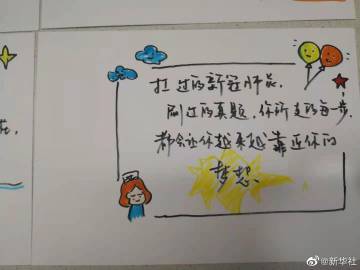 扛过的新冠肺炎,
刷过的真题,你所走的每一步,
都会让你越来越靠近你的
梦想
@新华社